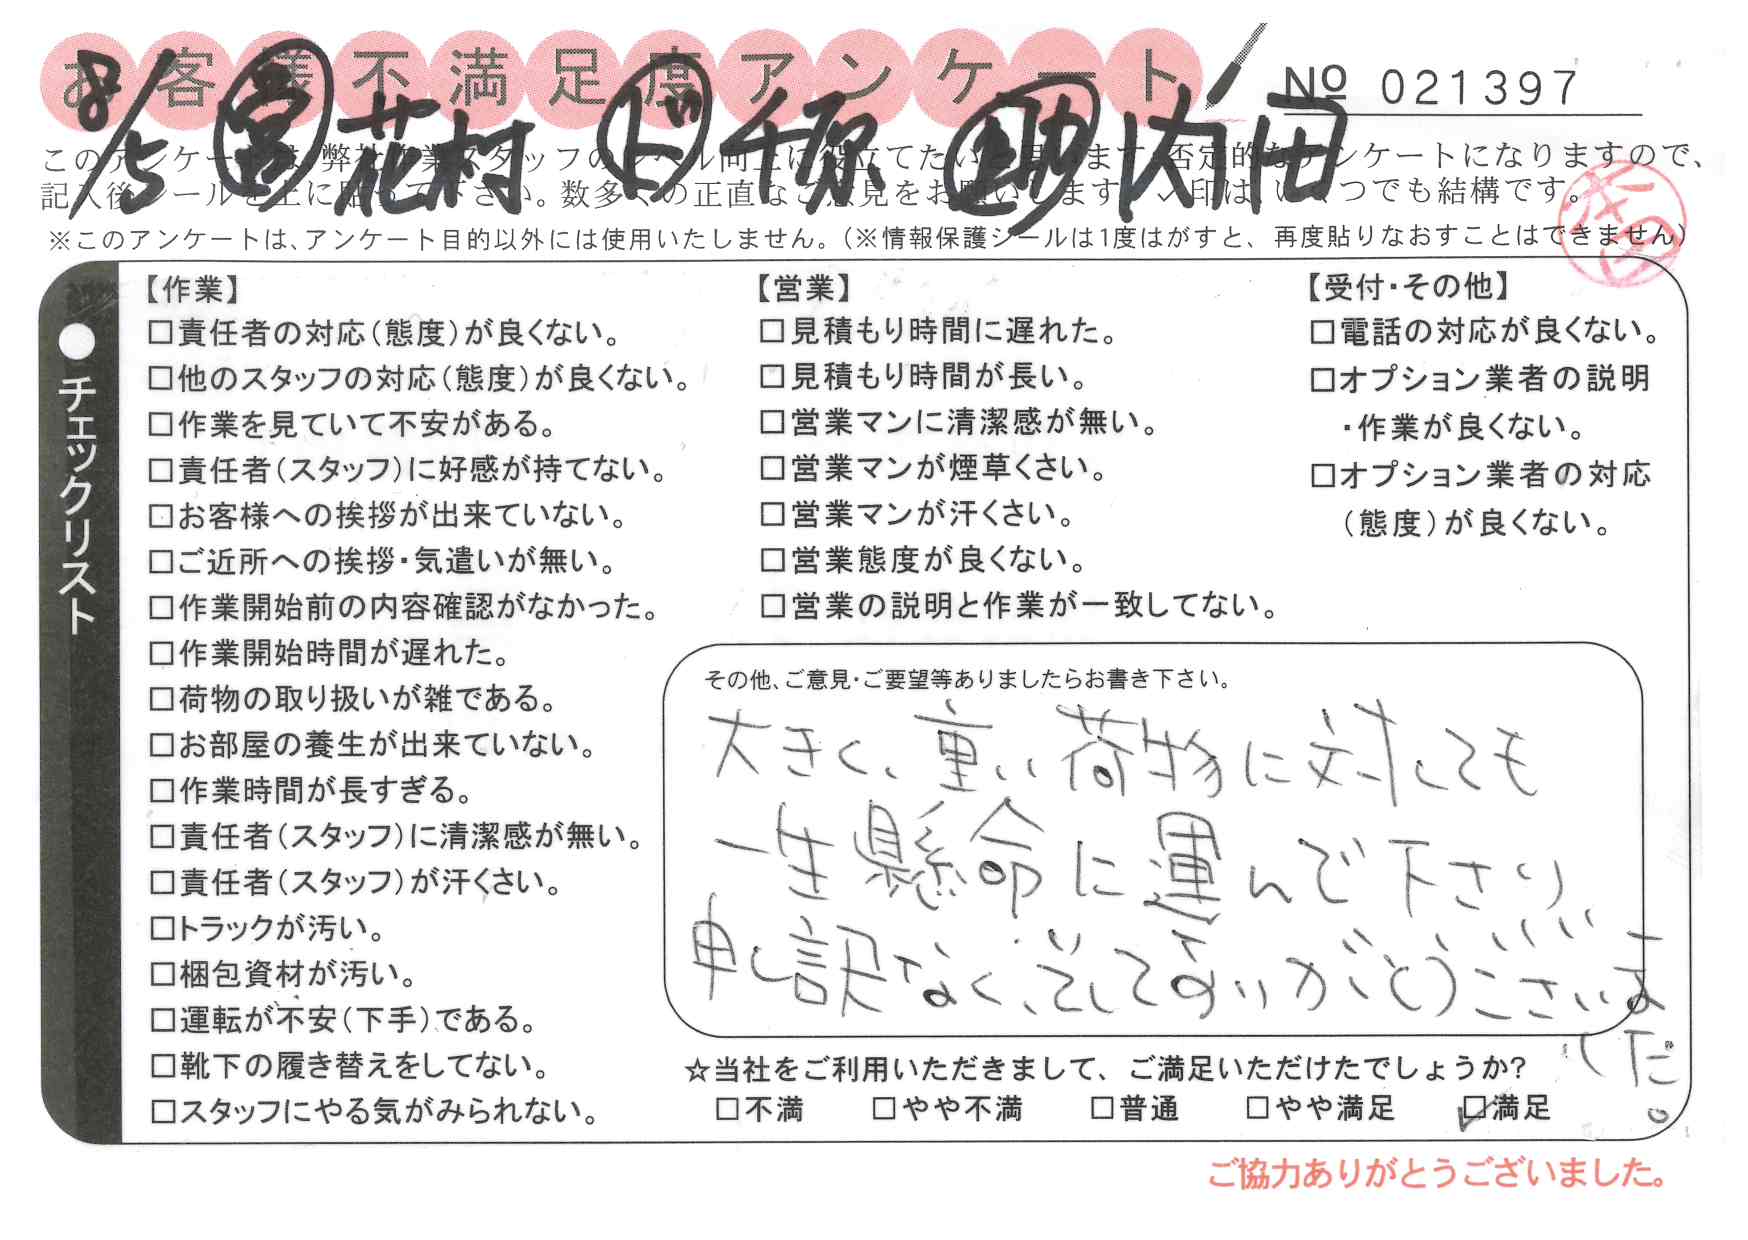 お客様不満足度アンケート
No 021397
8/5 営 花村 ド 千原 助 内田
このアンケートは、弊社作業スタッフのレベル向上に役立てたいと思います。否定的なアンケートになりますので、
記入後シールを上に貼って下さい。数多くの正直なご意見をお願いします。✓印は、いくつでも結構です。
※このアンケートは、アンケート目的以外には使用いたしません。(※情報保護シールは1度はがすと、再度貼りなおすことはできません)
●チェックリスト
【作業】
□責任者の対応(態度)が良くない。
□他のスタッフの対応(態度)が良くない。
□作業を見ていて不安がある。
□責任者(スタッフ)に好感が持てない。
□お客様への挨拶が出来ていない。
□ご近所への挨拶・気遣いが無い。
□作業開始前の内容確認がなかった。
□作業開始時間が遅れた。
□荷物の取り扱いが雑である。
□お部屋の養生が出来ていない。
□作業時間が長すぎる。
□責任者(スタッフ)に清潔感が無い。
□責任者(スタッフ)が汗くさい。
□トラックが汚い。
□梱包資材が汚い。
□運転が不安(下手)である。
□靴下の履き替えをしてない。
□スタッフにやる気がみられない。
【営業】
□見積もり時間に遅れた。
□見積もり時間が長い。
□営業マンに清潔感が無い。
□営業マンが煙草くさい。
□営業マンが汗くさい。
□営業態度が良くない。
□営業の説明と作業が一致してない。
【受付・その他】
□電話の対応が良くない。
□オプション業者の説明
・作業が良くない。
□オプション業者の対応
(態度)が良くない。
その他、ご意見・ご要望等ありましたらお書き下さい。
大きく、重い荷物に対しても
一生懸命に運んで下さり、
申し訳なく、そしてありがとうございま
した。
☆当社をご利用いただきまして、ご満足いただけたでしょうか?
□不満 □やや不満 □普通 □やや満足 ☑満足
ご協力ありがとうございました。